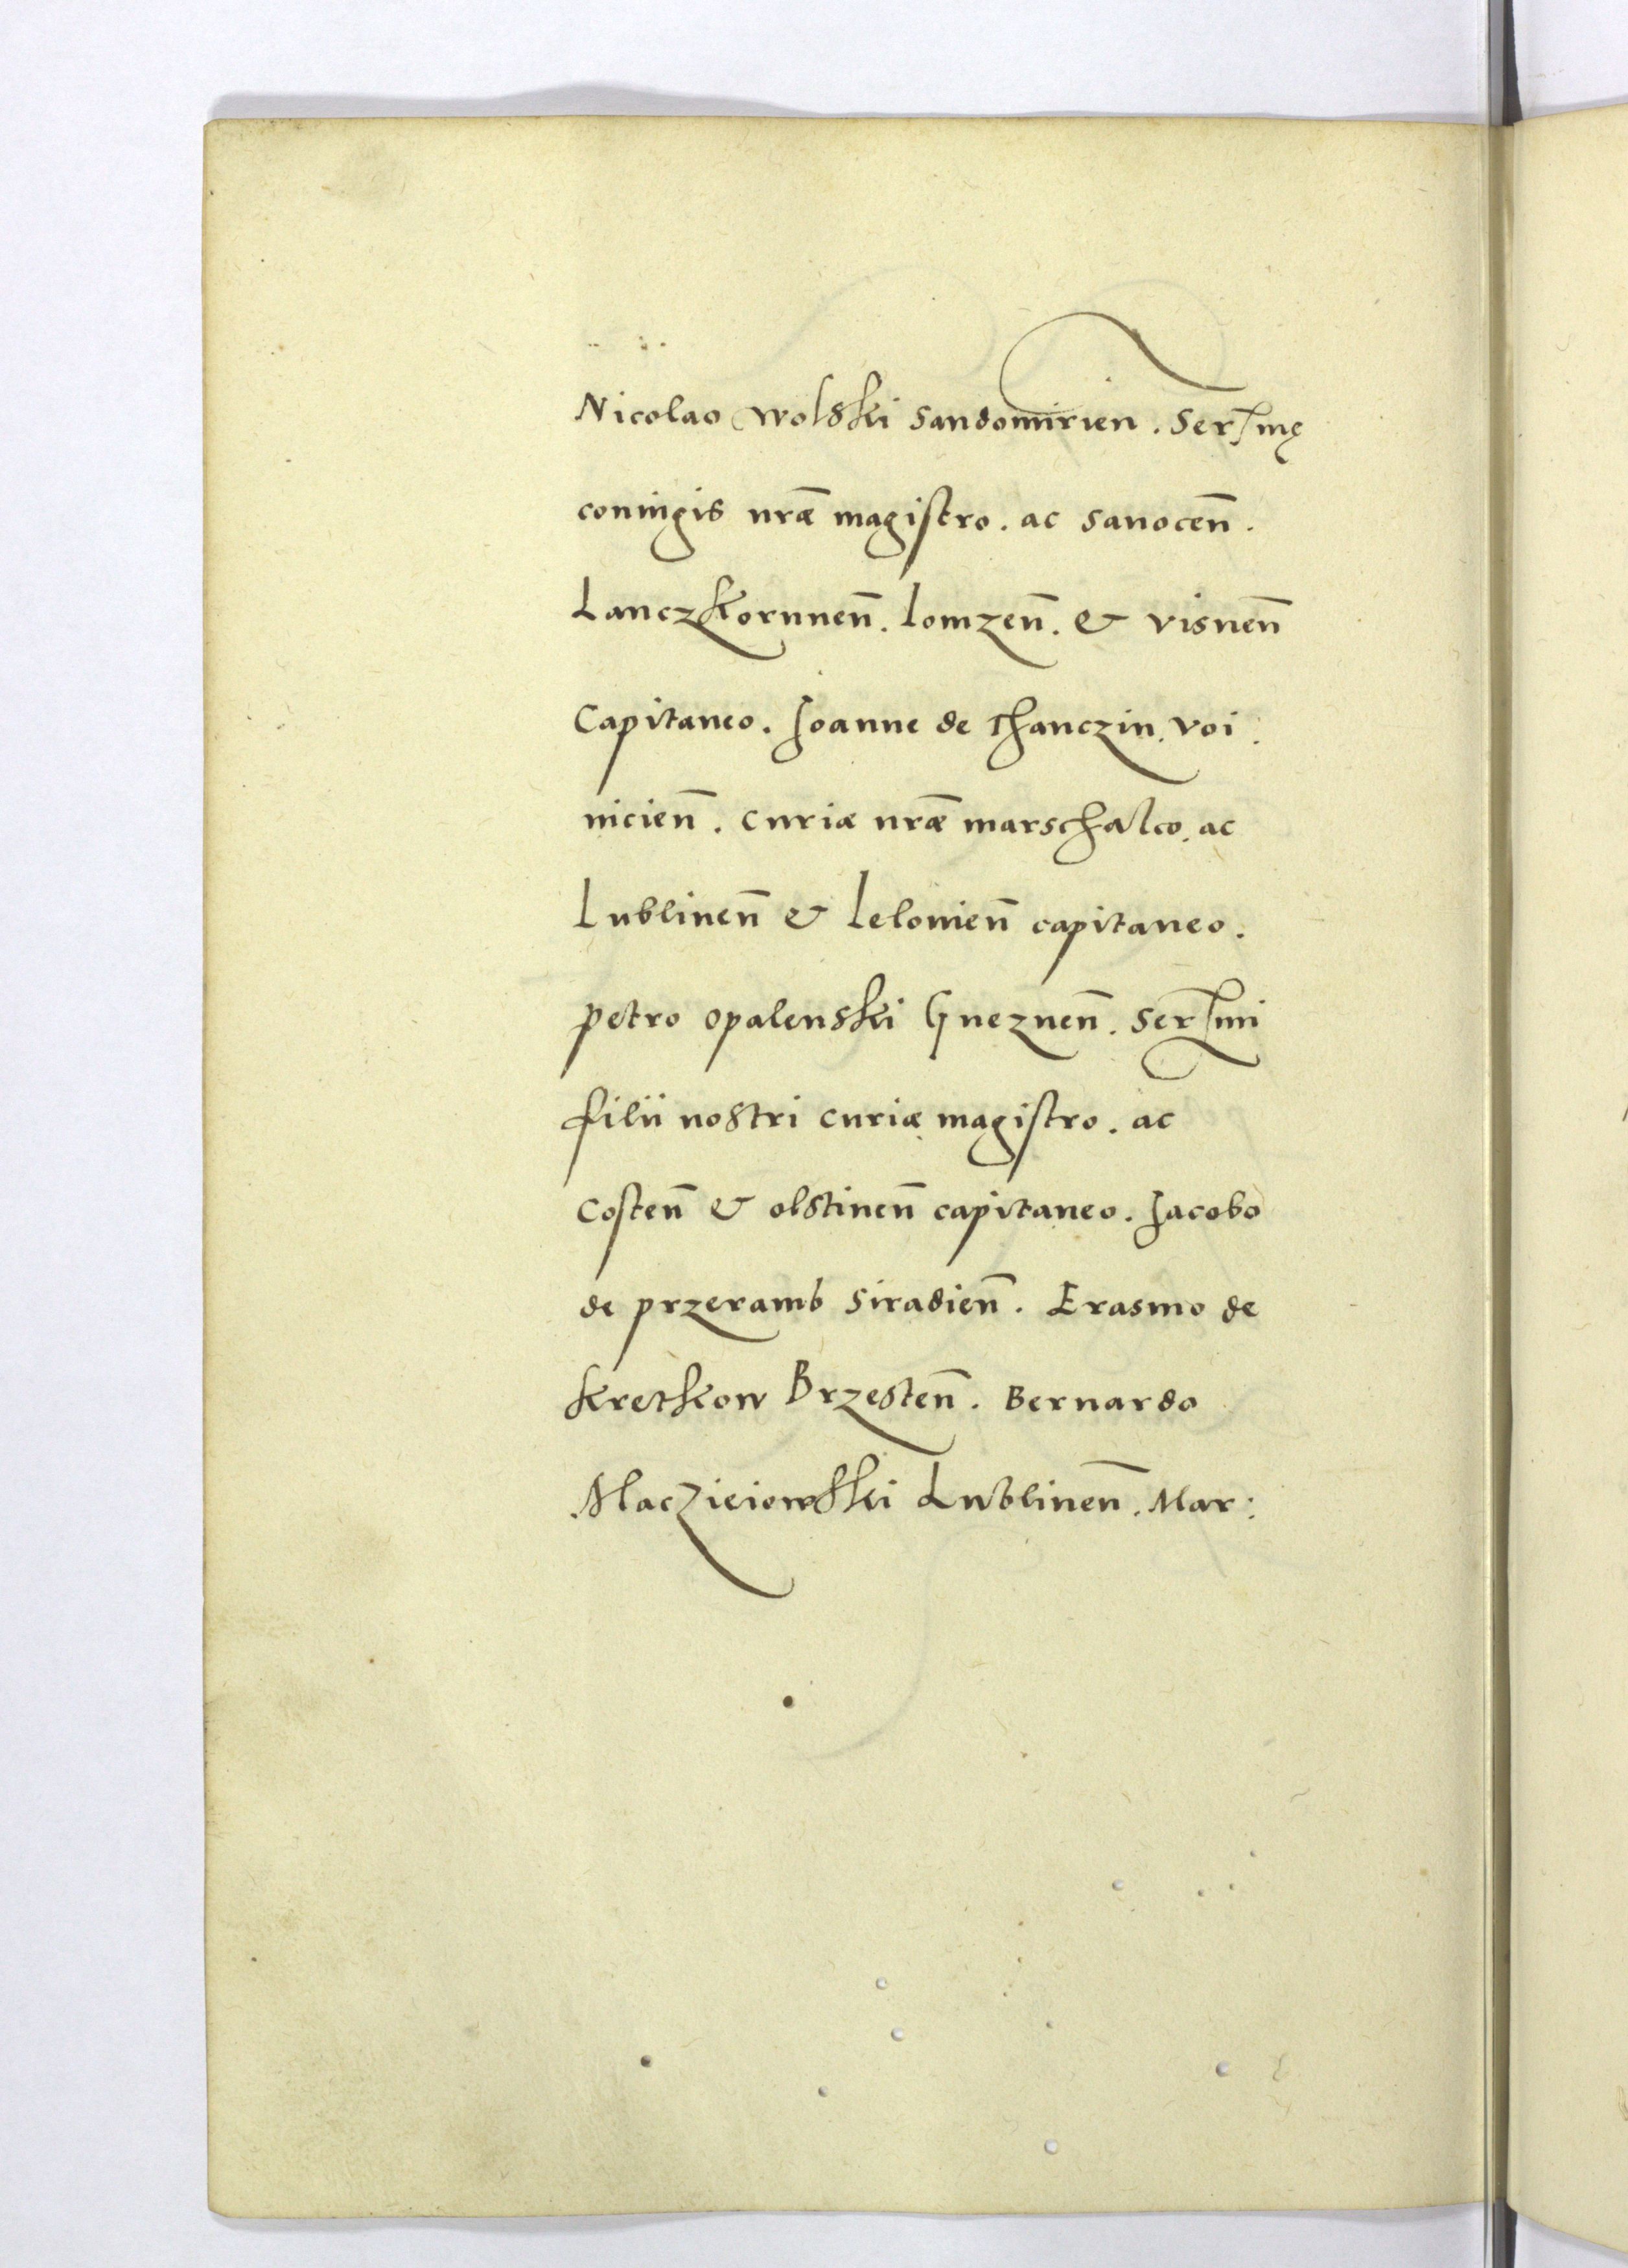 Nicolao Wolski Sandomirien. Serſmę
coniugis nr̄æ magiſtro. ac Sanocen̄.
Lanczkorunen̄. Lomzen̄. & Visnen̄
Capitaneo. Ioanne de Thanczin. Voi:
nicien̄. Curiæ nr̄æ marschalco. ac
Lublinen̄ & Lelouien̄ capitaneo.
Petro Opalenski Gneznen̄. Serſmi
filii nostri curiæ magiſtro. ac
Coſten̄ & olstinen̄ capitaneo. Iacobo
de przeramb Siradien̄. Erasmo de
Kretkow Brzesten̄. Bernardo
Maczieiowski Lublinen̄. Mar: